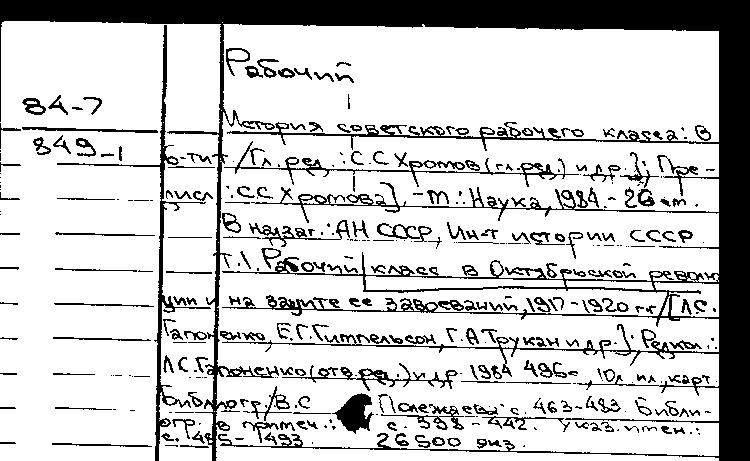 Рабочий
84-7
История советского рабочего класса: В
849-1
6-ти т /Гл. ред.: С С Хромов (гл. ред.) и др.]; Пре-
дисл: С С Хромова]. -М.: Наука, 1984.- 26 см.
В надзаг.: АН СССР, Ин-т истории СССР
Т.1. Рабочий класс в Октябрьской револю
ции и на защите ее завоеваний, 1917-1920 г.г /[Л.С.
Гапоненко, Е.Г. Гимпельсон, Г.А Трукан и др.]; Редкол.:
Л.С. Гапоненко (отв. ред.) и др 1984 496с, 10л. ил., карт
Библиогр./В.С Полежаева: с. 463-483. Библи-
огр. в примеч.: с. 442. Указ. имен.:
с. 26500 экз.